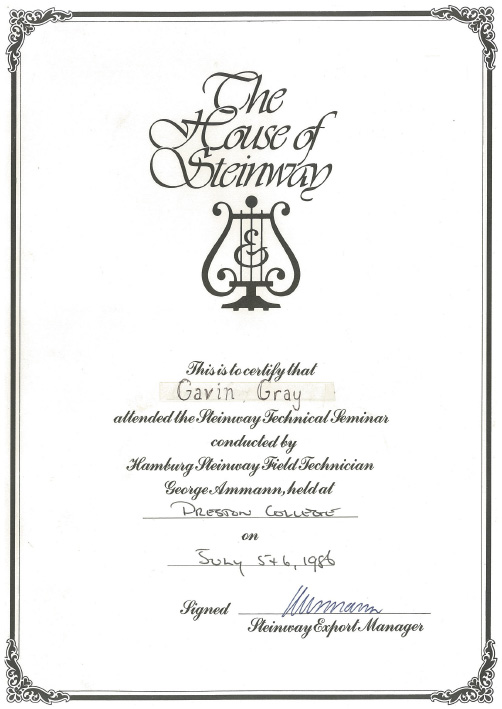 The
House of
Steinway
This is to certify that
Gavin Gray
attended the Steinway Technical Seminar
conducted by
Hamburg Steinway Field Technician
George Ammann, held at
PRESTON COLLEGE
on
JULY 5+6, 1986
Signed
Steinway Export Manager